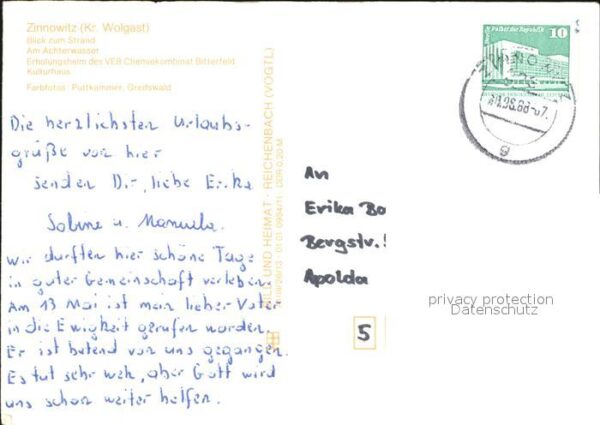 Zinnowitz (Kr. Wolgast)
Blick zum Strand
Am Achterwasser
Erholungsheim des VEB Chemiekombinat Bitterfeld
Kulturhaus
Farbfotos: Puttkammer, Greifswald
Palast der Republik 10
Die herzlichsten Urlaubs-
grüße von hier
senden Dir, liebe Erika
Sabine u. Manuela.
Wir durften hier schöne Tage
in guter Gemeinschaft verleben.
Am 13 Mai ist mein lieber Vater
in die Ewigkeit gerufen worden.
Er ist betend von uns gegangen.
Es tut sehr weh, aber Gott wird
uns schon weiter helfen.
BILD UND HEIMAT · REICHENBACH (VOGTL)
An
Erika Bo
Bergstr.
Apolda
5
privacy protection
Datenschutz